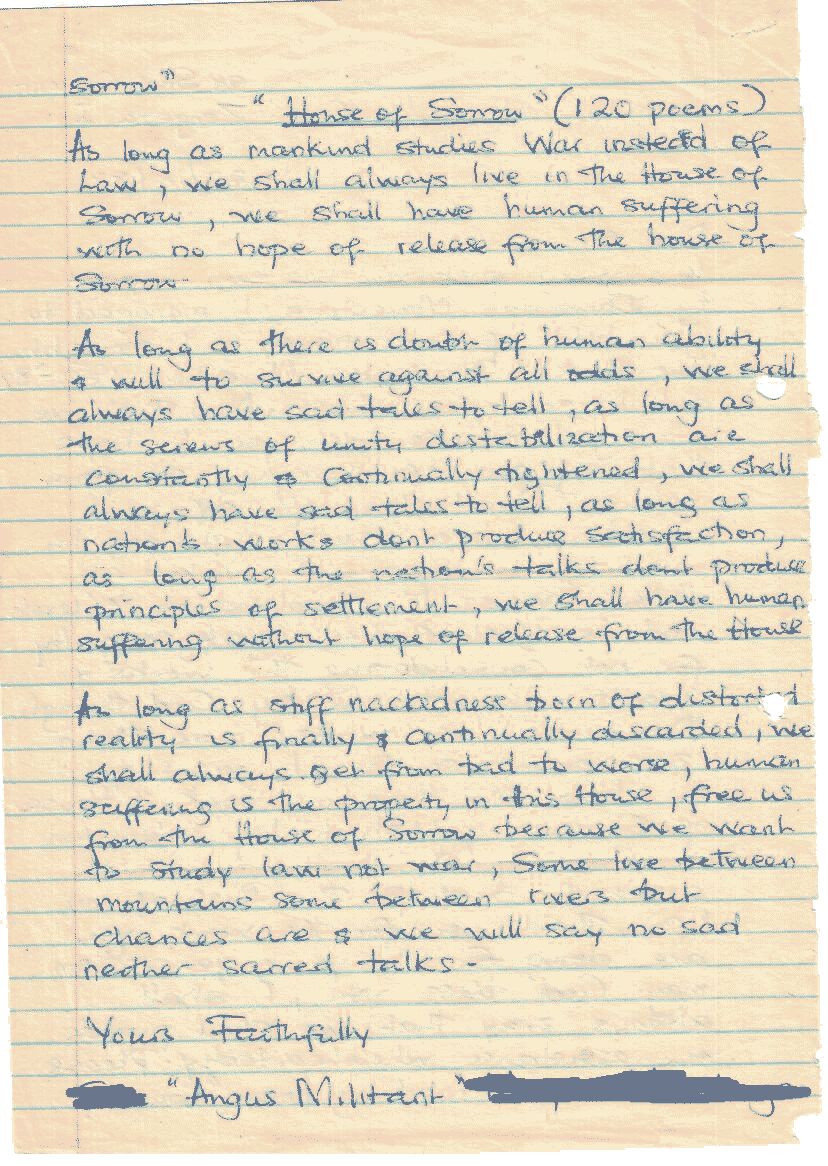 Sorrow"
"House of Sorrow" (120 poems)
As long as mankind studies War instead of
Law, we shall always live in the House of
Sorrow, we shall have human suffering
with no hope of release from the house of
Sorrow
As long as there is doubt of human ability
& will to survive against all odds, we shall
always have sad tales to tell, as long as
the screws of unity destabilization are
constantly & Continually tightened, we shall
always have sad tales to tell, as long as
nation's works dont produce satisfaction,
as long as the nation's talks dont produce
principles of settlement, we shall have human
suffering without hope of release from the House
As long as stiff nackedness born of distorted
reality is finally & continually discarded, we
shall always get from bad to worse, human
suffering is the property in this House, free us
from the House of Sorrow because we want
to study law not war, Some live between
mountains some between rivers but
chances are & we will say no sad
neither sacred talks.
Yours Faithfully
"Angus Militant"